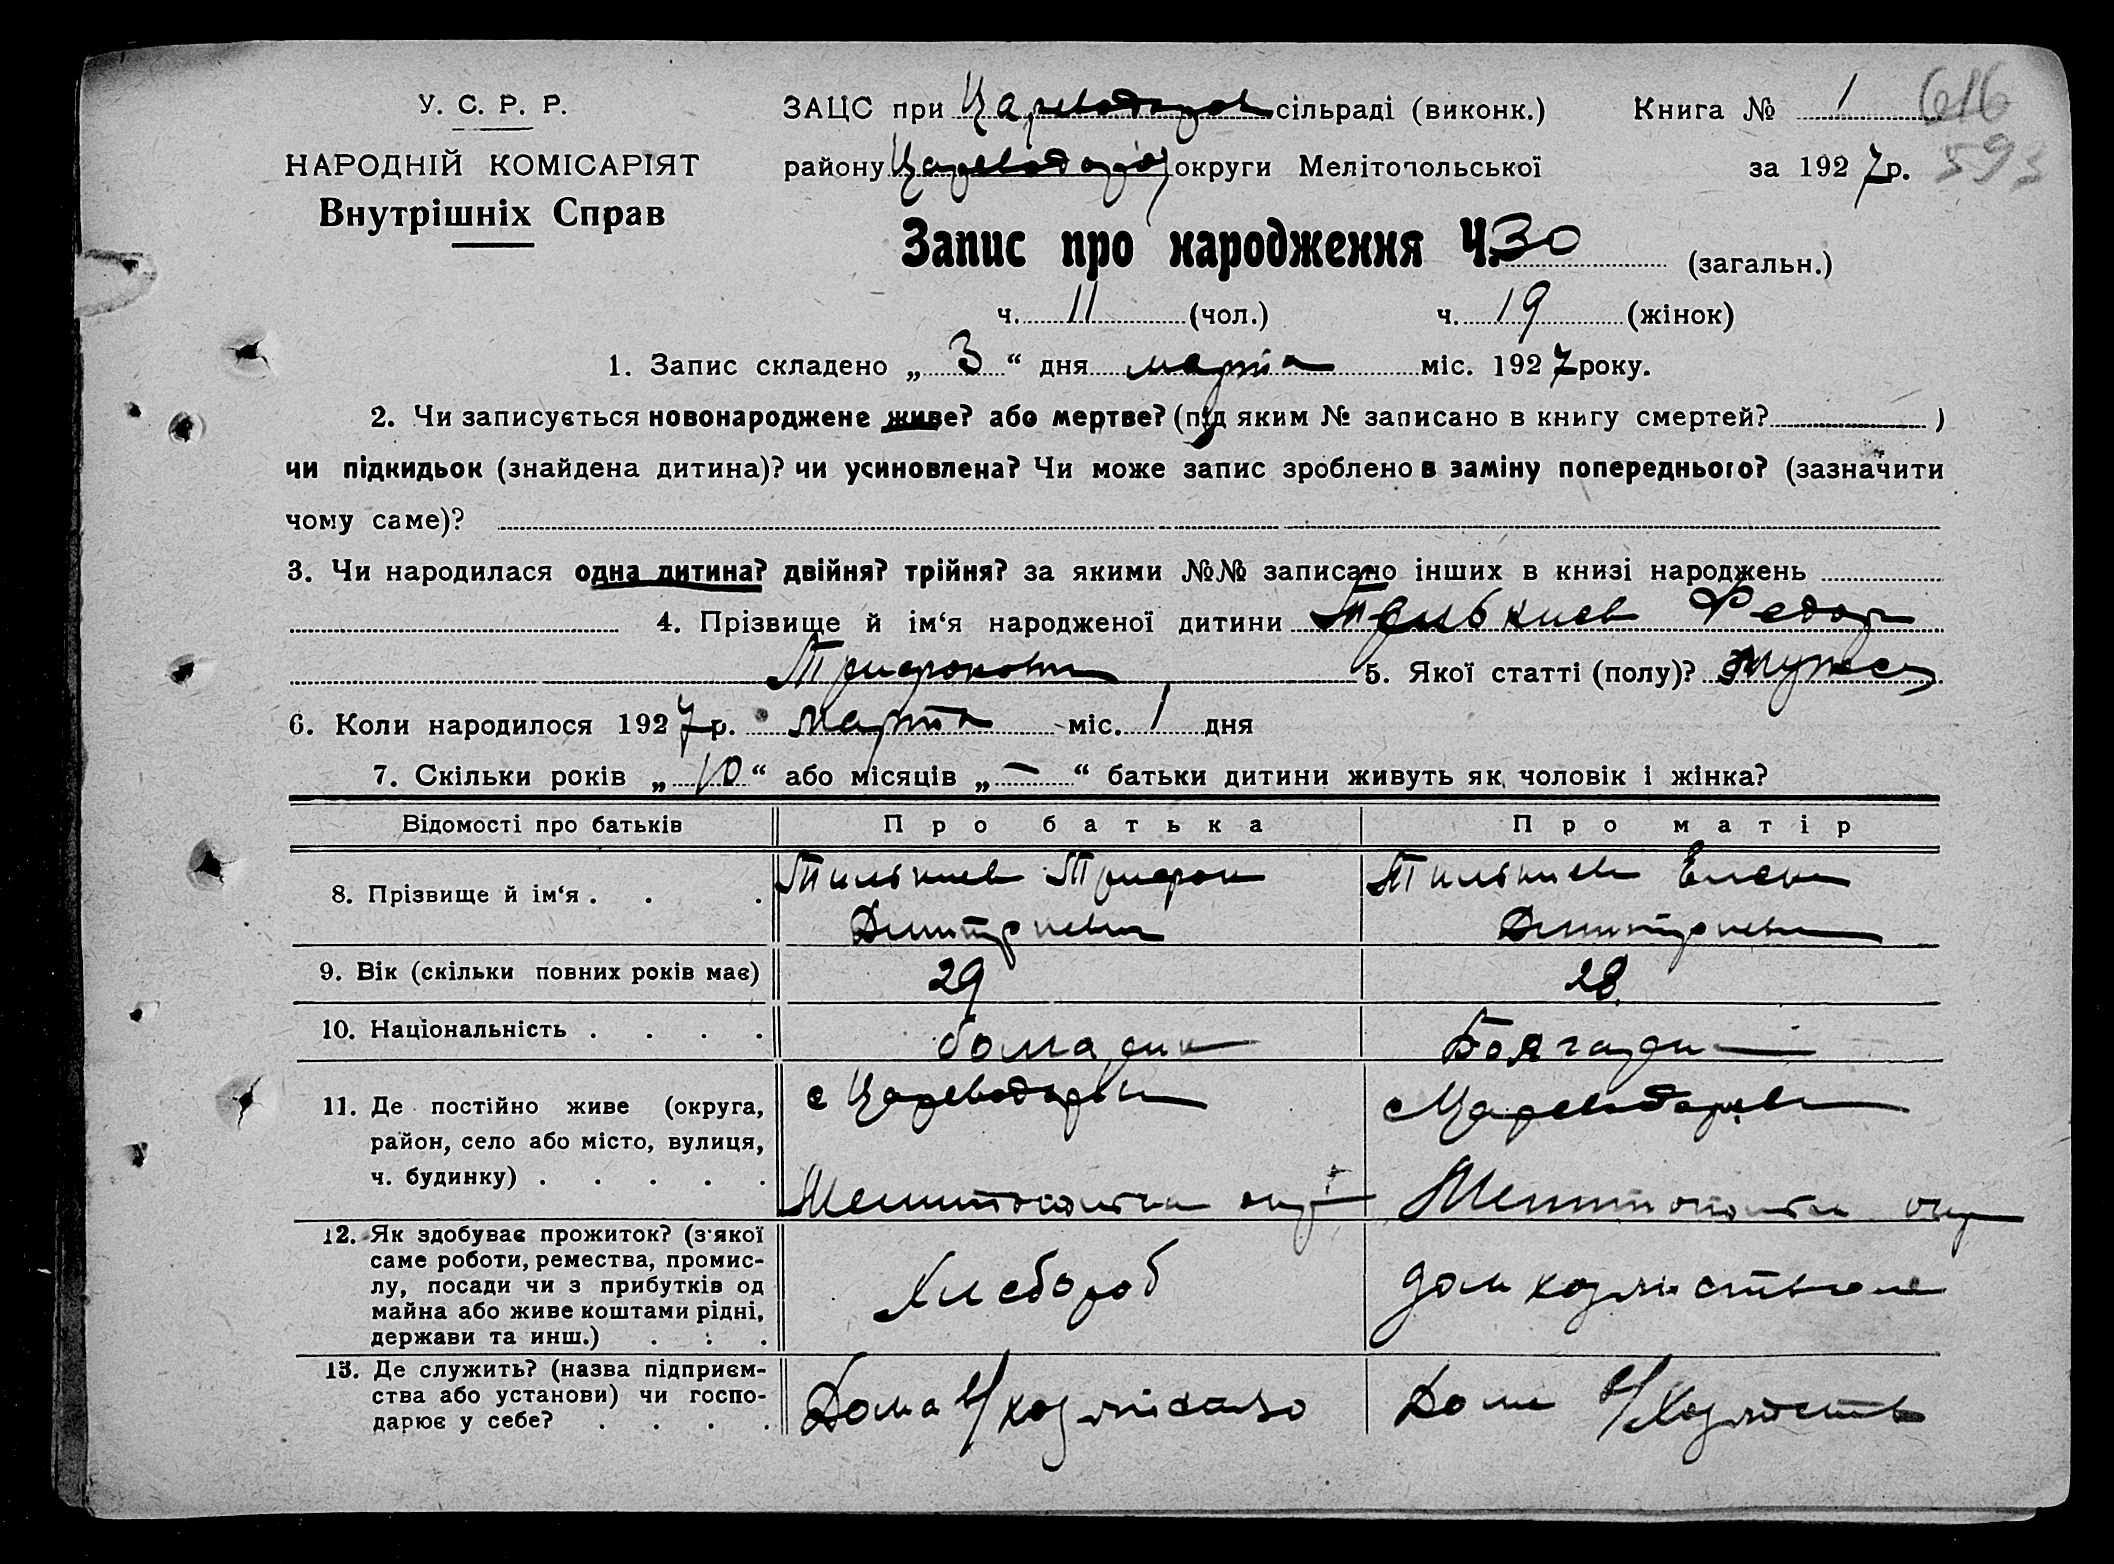 У. С. Р. Р.
НАРОДНІЙ КОМІСАРІЯТ
Внутрішніх Справ
ЗАЦС при Цареводаров сільраді (виконк.)
Книга № 1
616
593
району округи Мелітопольської
за 1927 р.
Запис про народження Ч. 30 (загальн.)
ч. 11 (чол.) ч. 19 (жінок)
1. Запис складено „ 3 “ дня марта міс. 1927 року.
2. Чи записується новонароджене живе? або мертве? (під яким № записано в книгу смертей? )
чи підкидьок (знайдена дитина)? чи усиновлена? Чи може запис зроблено в заміну попереднього? (зазначити
чому саме)?
3. Чи народилася одна дитина? двійня? трійня? за якими №№ записано інших в книзі народжень
4. Прізвище й ім‘я народженої дитини Федор
Трифонови 5. Якої статті (полу)? Мужск
6. Коли народилося 1927 р. марта міс. 1 дня
7. Скільки років „ 10 “ або місяців „ — “ батьки дитини живуть як чоловік і жінка?
Відомості про батьків
Про батька
Про матір
8. Прізвище й ім‘я . . .
Тилькиев Трифон
Дмитриевич
Тилькиев Елена
Дмитриевн
9. Вік (скільки повних років має)
29
28
10. Національність . . . .
11. Де постійно живе (округа,
район, село або місто, вулиця,
ч. будинку) . . . . .
с Цареводаровк
Мелитопольск окр
с Цареводаровк
Мелитопольск окр
12. Як здобуває прожиток? (з'якої
саме роботи, ремества, промис-
лу, посади чи з прибутків од
майна або живе коштами рідні,
держави та инш.) . . .
Хлебороб
дом хозяйством
13. Де служить? (назва підприєм-
ства або установи) чи госпо-
дарює у себе? . . . .
Дома в/
Дома в/хозяйств